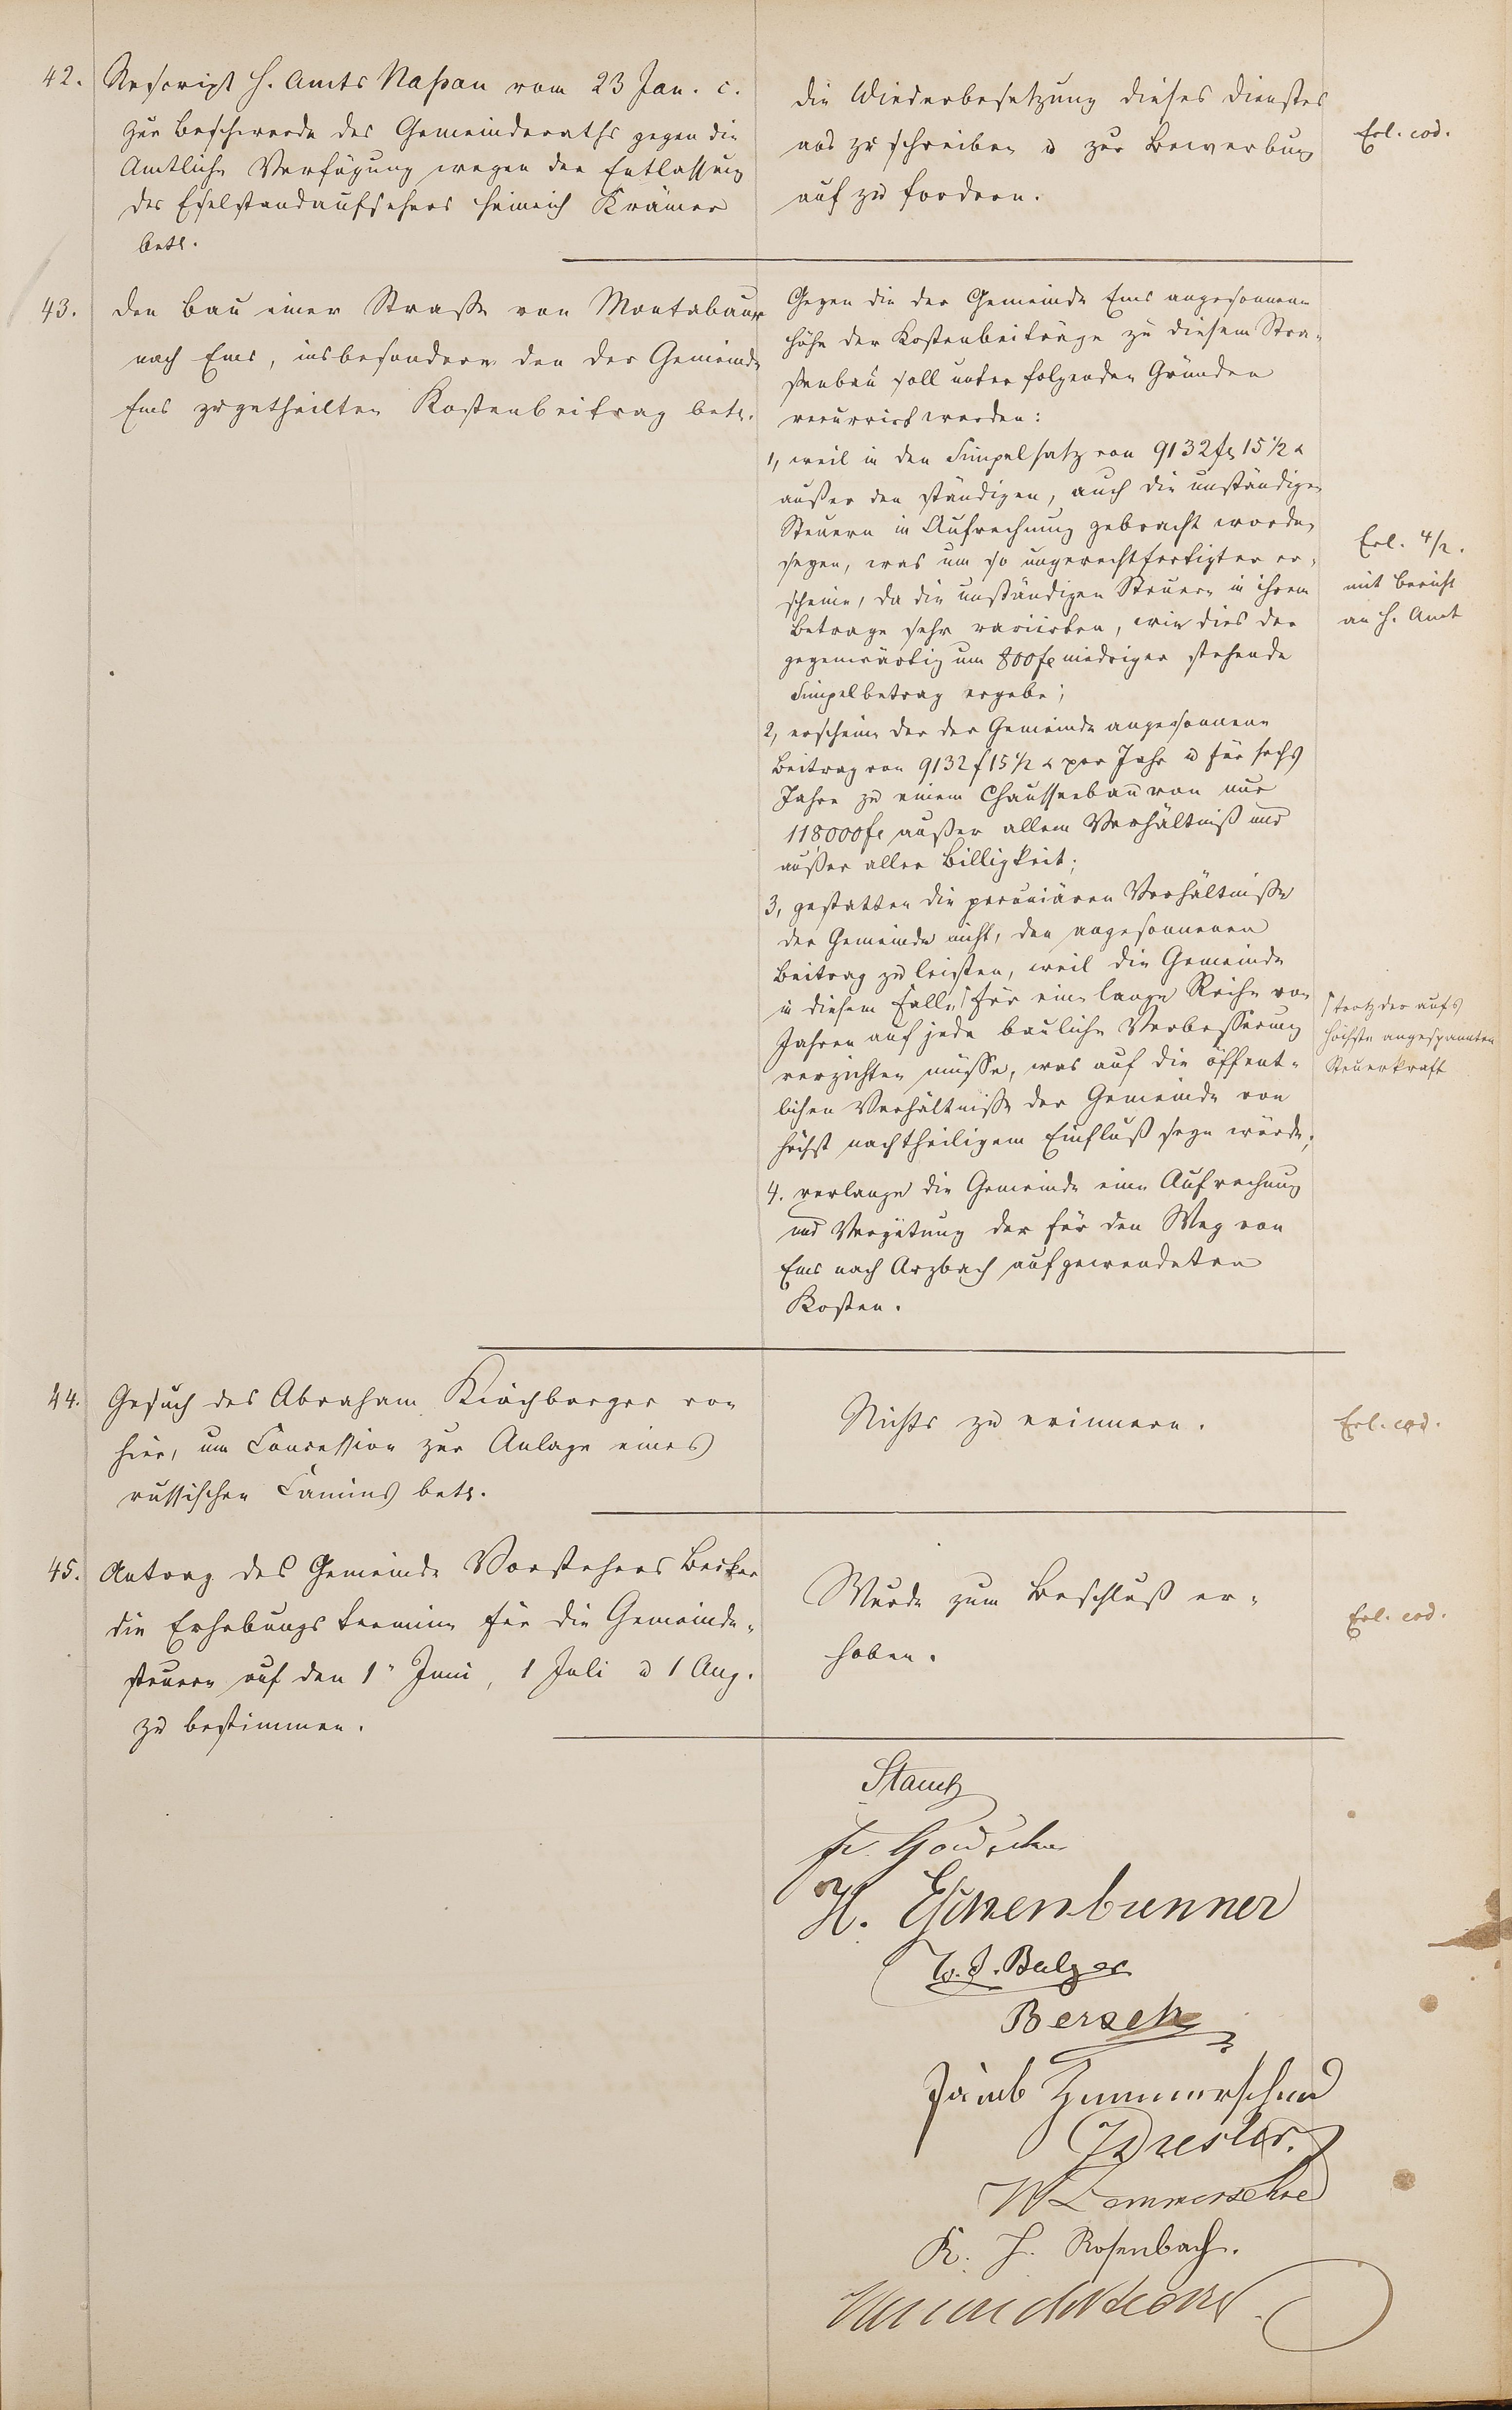 42. Rescript H. Amts Naßau vom 23 Jan. c.
zur Beschwerde des Gemeinderaths gegen die
Amtliche Verfügung wegen der Entlassung
des Eselstandaufsehers Heinrich Krämer
betr.
die Wiederbesetzung dieses Dienstes
aus zu schreiben u zur Bewerbung
auf zu fordern.
Erl. eod.
43. den Bau einer Straße von Montabaur
nach Ems, insbesondere den der Gemeinde
Ems zugetheilten Kostenbeitrag betr.
Gegen die der Gemeinde Ems angesonnene
Höhe der Kostenbeiträge zu diesem Stra-
ßenbau soll unter folgenden Gründen
recurrirt werden:
1, weil in den Simpelsatz von 9132 fl 15 1/2 x
außer den ständigen, auch die unständigen
Steuern in Aufrechnung gebracht worden
seyen, was um so ungerechtfertigter er-
scheine, da die unständigen Steuern in ihrem
Betrage sehr variirten, wie dies der
gegenwärtig um 800 fl niedriger stehende
Simpelbetrag ergebe;
2, erscheine der der Gemeinde angesonnene
Beitrag von 9132 f 15 1/2 x per Jahr u für sechs
Jahre zu einem Chausseebau von nur
118000 fl außer allem Verhältniß und
außer aller Billigkeit;
3, gestatten die pecuniären Verhältniße
der Gemeinde nicht, den angesonnenen
Beitrag zu leisten, weil die Gemeinde
in diesem Falle, für eine lange Reihe von
Jahren auf jede bauliche Verbesserung
verzichten müsse, was auf die öffent-
lichen Verhältniße der Gemeinde von
höchst nachtheiligem Einfluß seyn würde;
4. verlange die Gemeinde eine Aufrechnung
und Vergütung der für den Weg von
Ems nach Arzbach aufgewendeten
Kosten.
Erl. 4/2.
mit Bericht
an H. Amt
trotz der aufs
höchste angespannten
Steuerkraft
44. Gesuch des Abraham Kirchberger von
hier, um Concession zur Anlage eines
russischen Camins betr.
Nichts zu erinnern.
Erl. eod.
45. Antrag des Gemeinde Vorstehers Becker
die Erhebungs termine für die Gemeinde-
steuern auf den 1" Juni, 1 Juli u 1 Aug.
zu bestimmen.
Wurde zum Beschluß er-
hoben.
Erl. eod.
H. Eschenbrenner
W. J. Balzer
Bersch
Jacob Zimmerschied
Dresler.
W Zimmerschied
K. H. Rosenbach.